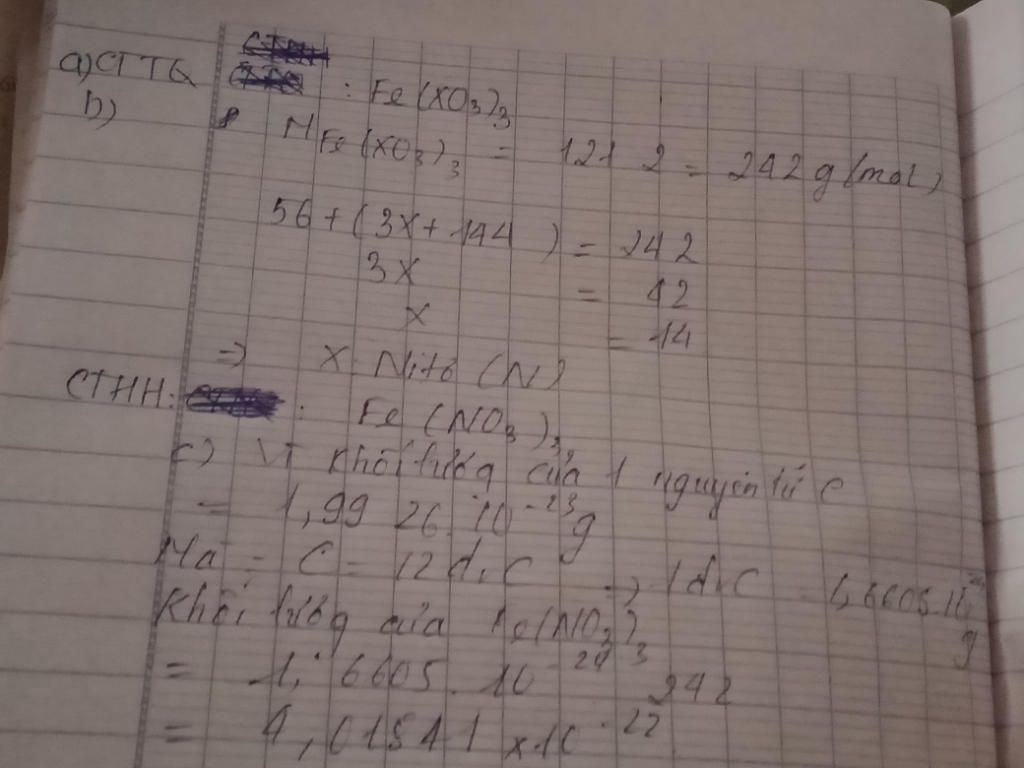 a) CTTQ : Fe(XO₃)₃
b) M Fe(XO₃)₃ = 121.2 = 242 g/mol)
56 + (3X + 144) = 242
3X = 42
X = 14
=> X Nitơ (N)
CTHH: : Fe(NO₃)₃
c) Vì khối lượng của 1 nguyên tử C
= 1,9926.10⁻²³g
Mà = C = 12 đ.v.C → 1đ.v.C = 1,6605.10⁻²⁴ g
Khối lượng của Fe(NO₃)₃
= 1,6605.10⁻²⁴ 242
= 4,01841 x 10⁻²²